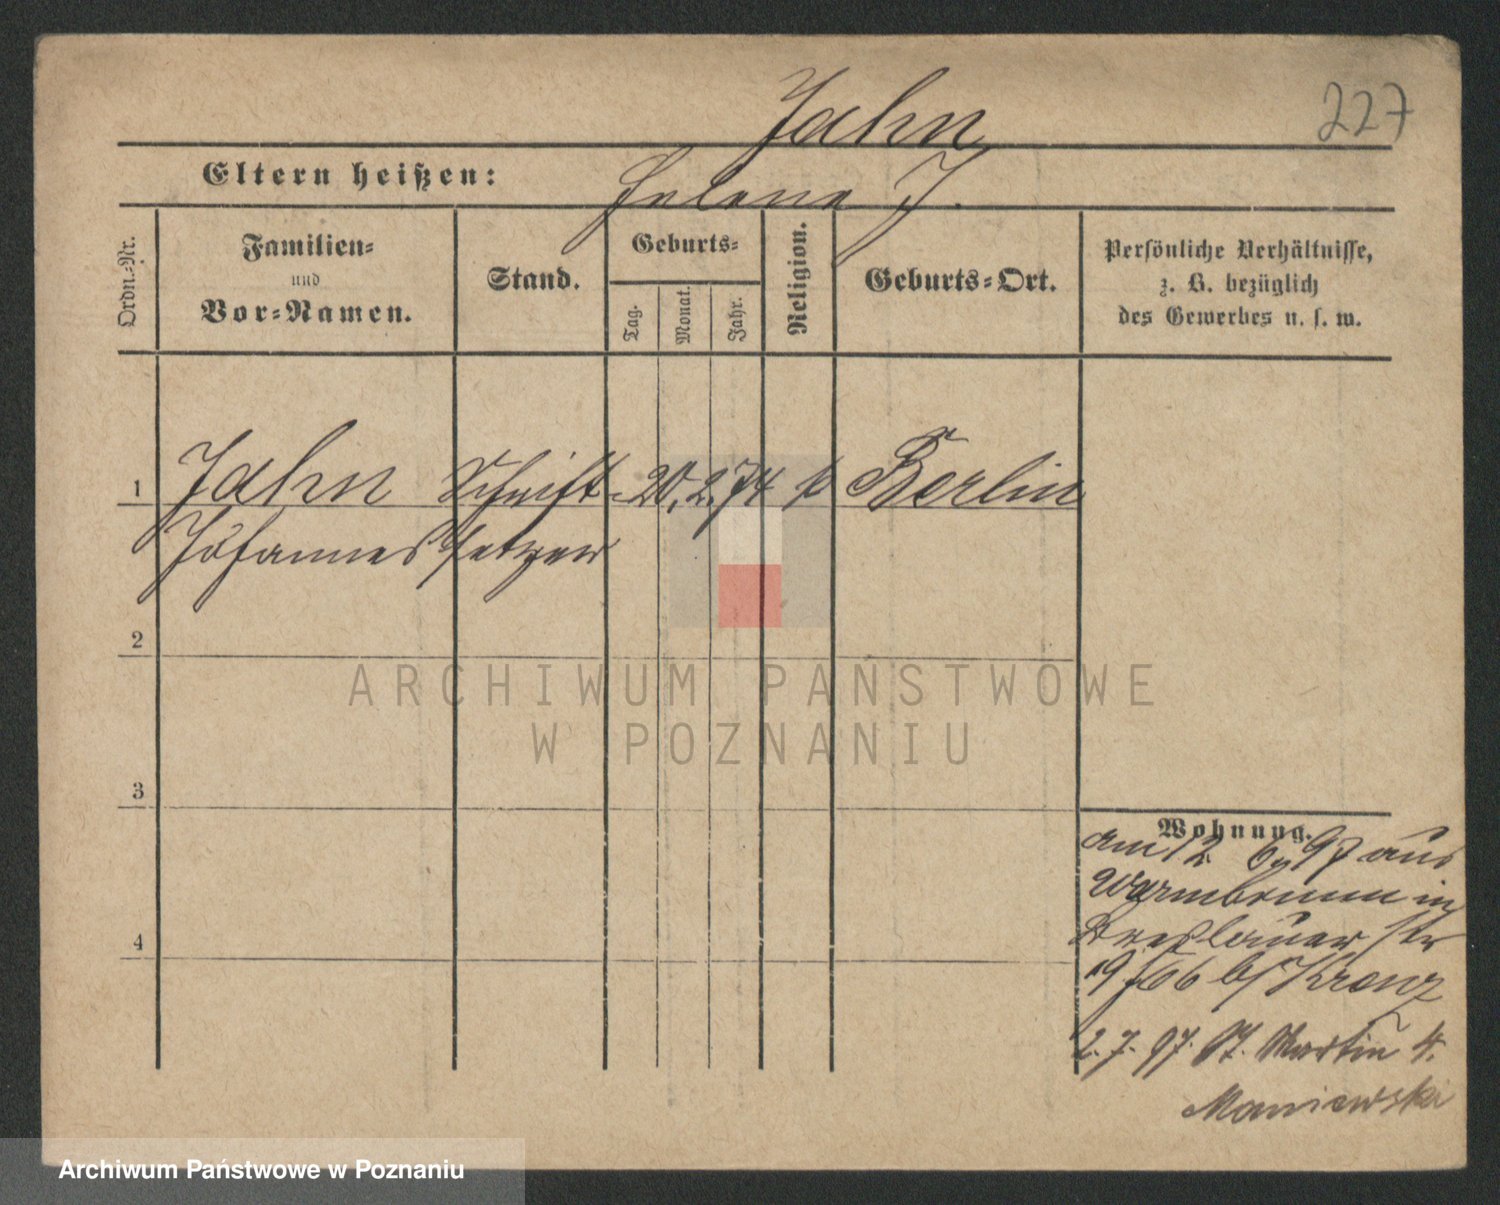 Jahn
227
Eltern heißen:
Helene J.
Ordn.-Nr.
Familien-
und
Vor-Namen.
Stand.
Geburts-
Tag.
Monat.
Jahr.
Religion.
Geburts-Ort.
Persönliche Verhältnisse,
z. B. bezüglich
des Gewerbes u. s. w.
1 Jahn Schrift- 20. 2. 74 k Berlin
Johannes setzer
2
3
4
ARCHIWUM PAŃSTWOWE
W POZNANIU
Wohnung.
am 12 6. 97 aus
Warmbrunn in
Breslauer Str
19 b/ Kranz
2. 7. 97. St. Martin 4.
Maniewski
Archiwum Państwowe w Poznaniu